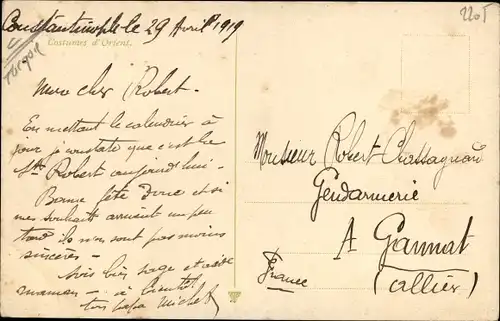 Constantinople le 29 Avril 1919
Costumes d'Orient.
Turquie
220F
Mon cher Robert.
En mettant le calendrier à
jour je constate que c'est la
St Robert aujourd'hui-
Bonne fête donc et si
mes souhaits arrivent un peu
tard ils n'en sont pas moins
sincères-
Sois bien sage et aide
maman- à bientôt
ton papa Michel
Monsieur Robert Chassagnard
Gendarmerie
A Gannat
(Allier)
France